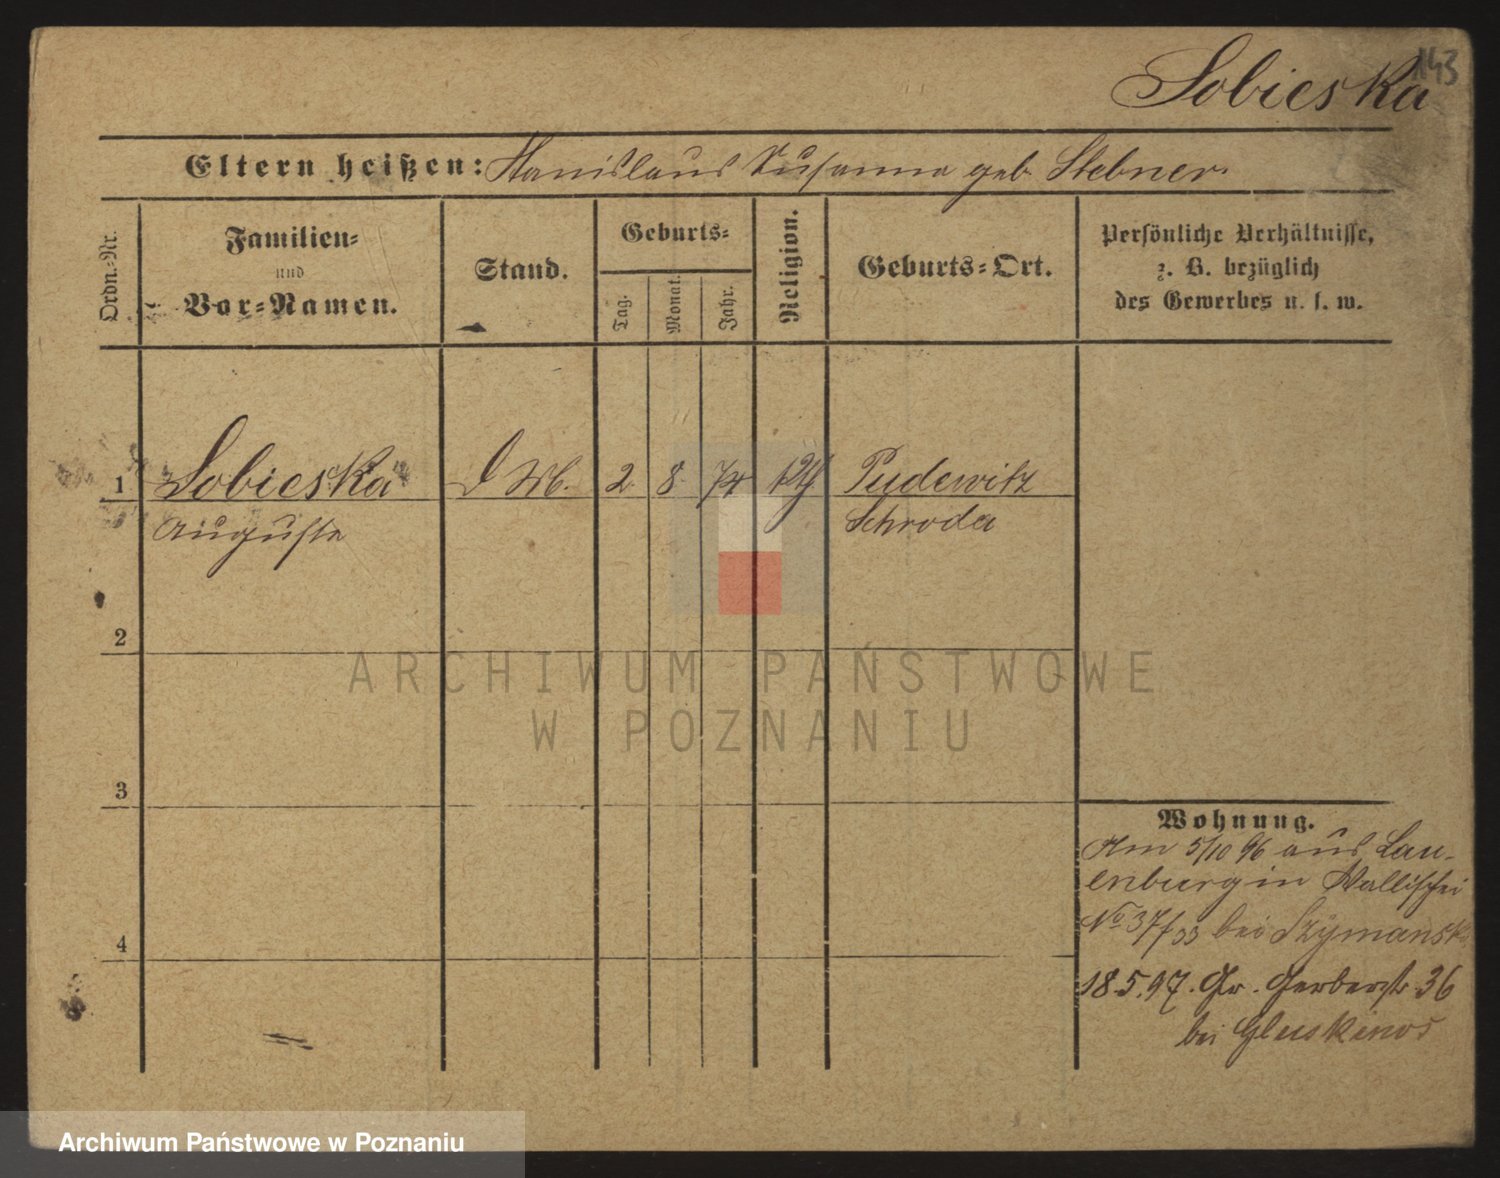 143
Sobieska
Eltern heißen: Stanislaus Susanna geb. Stebner.
Ordn.-Nr.
Familien-
und
Vor-Namen.
Stand.
Geburts-
Tag.
Monat.
Jahr.
Religion.
Geburts-Ort.
Persönliche Verhältnisse,
z. B. bezüglich
des Gewerbes u. s. w.
1 Sobieska 2. 8. Pudewitz
Auguste Schroda
2
3
4
Wohnung.
Am 5/10 96 aus Lau-
enburg in Wallischei
No 37/33 bei Szymansk
18.5.97. Gr. Gerberstr. 36
bei Gluskinos
ARCHIWUM PAŃSTWOWE
W POZNANIU
Archiwum Państwowe w Poznaniu